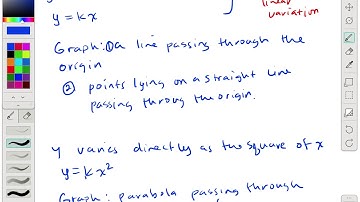 y = kx
linear
variation
Graph: ① a line passing through the
origin
② points lying on a straight line
passing throug the origin.
y varies directly as the square of x
y = kx²
Graph: parabola passing through